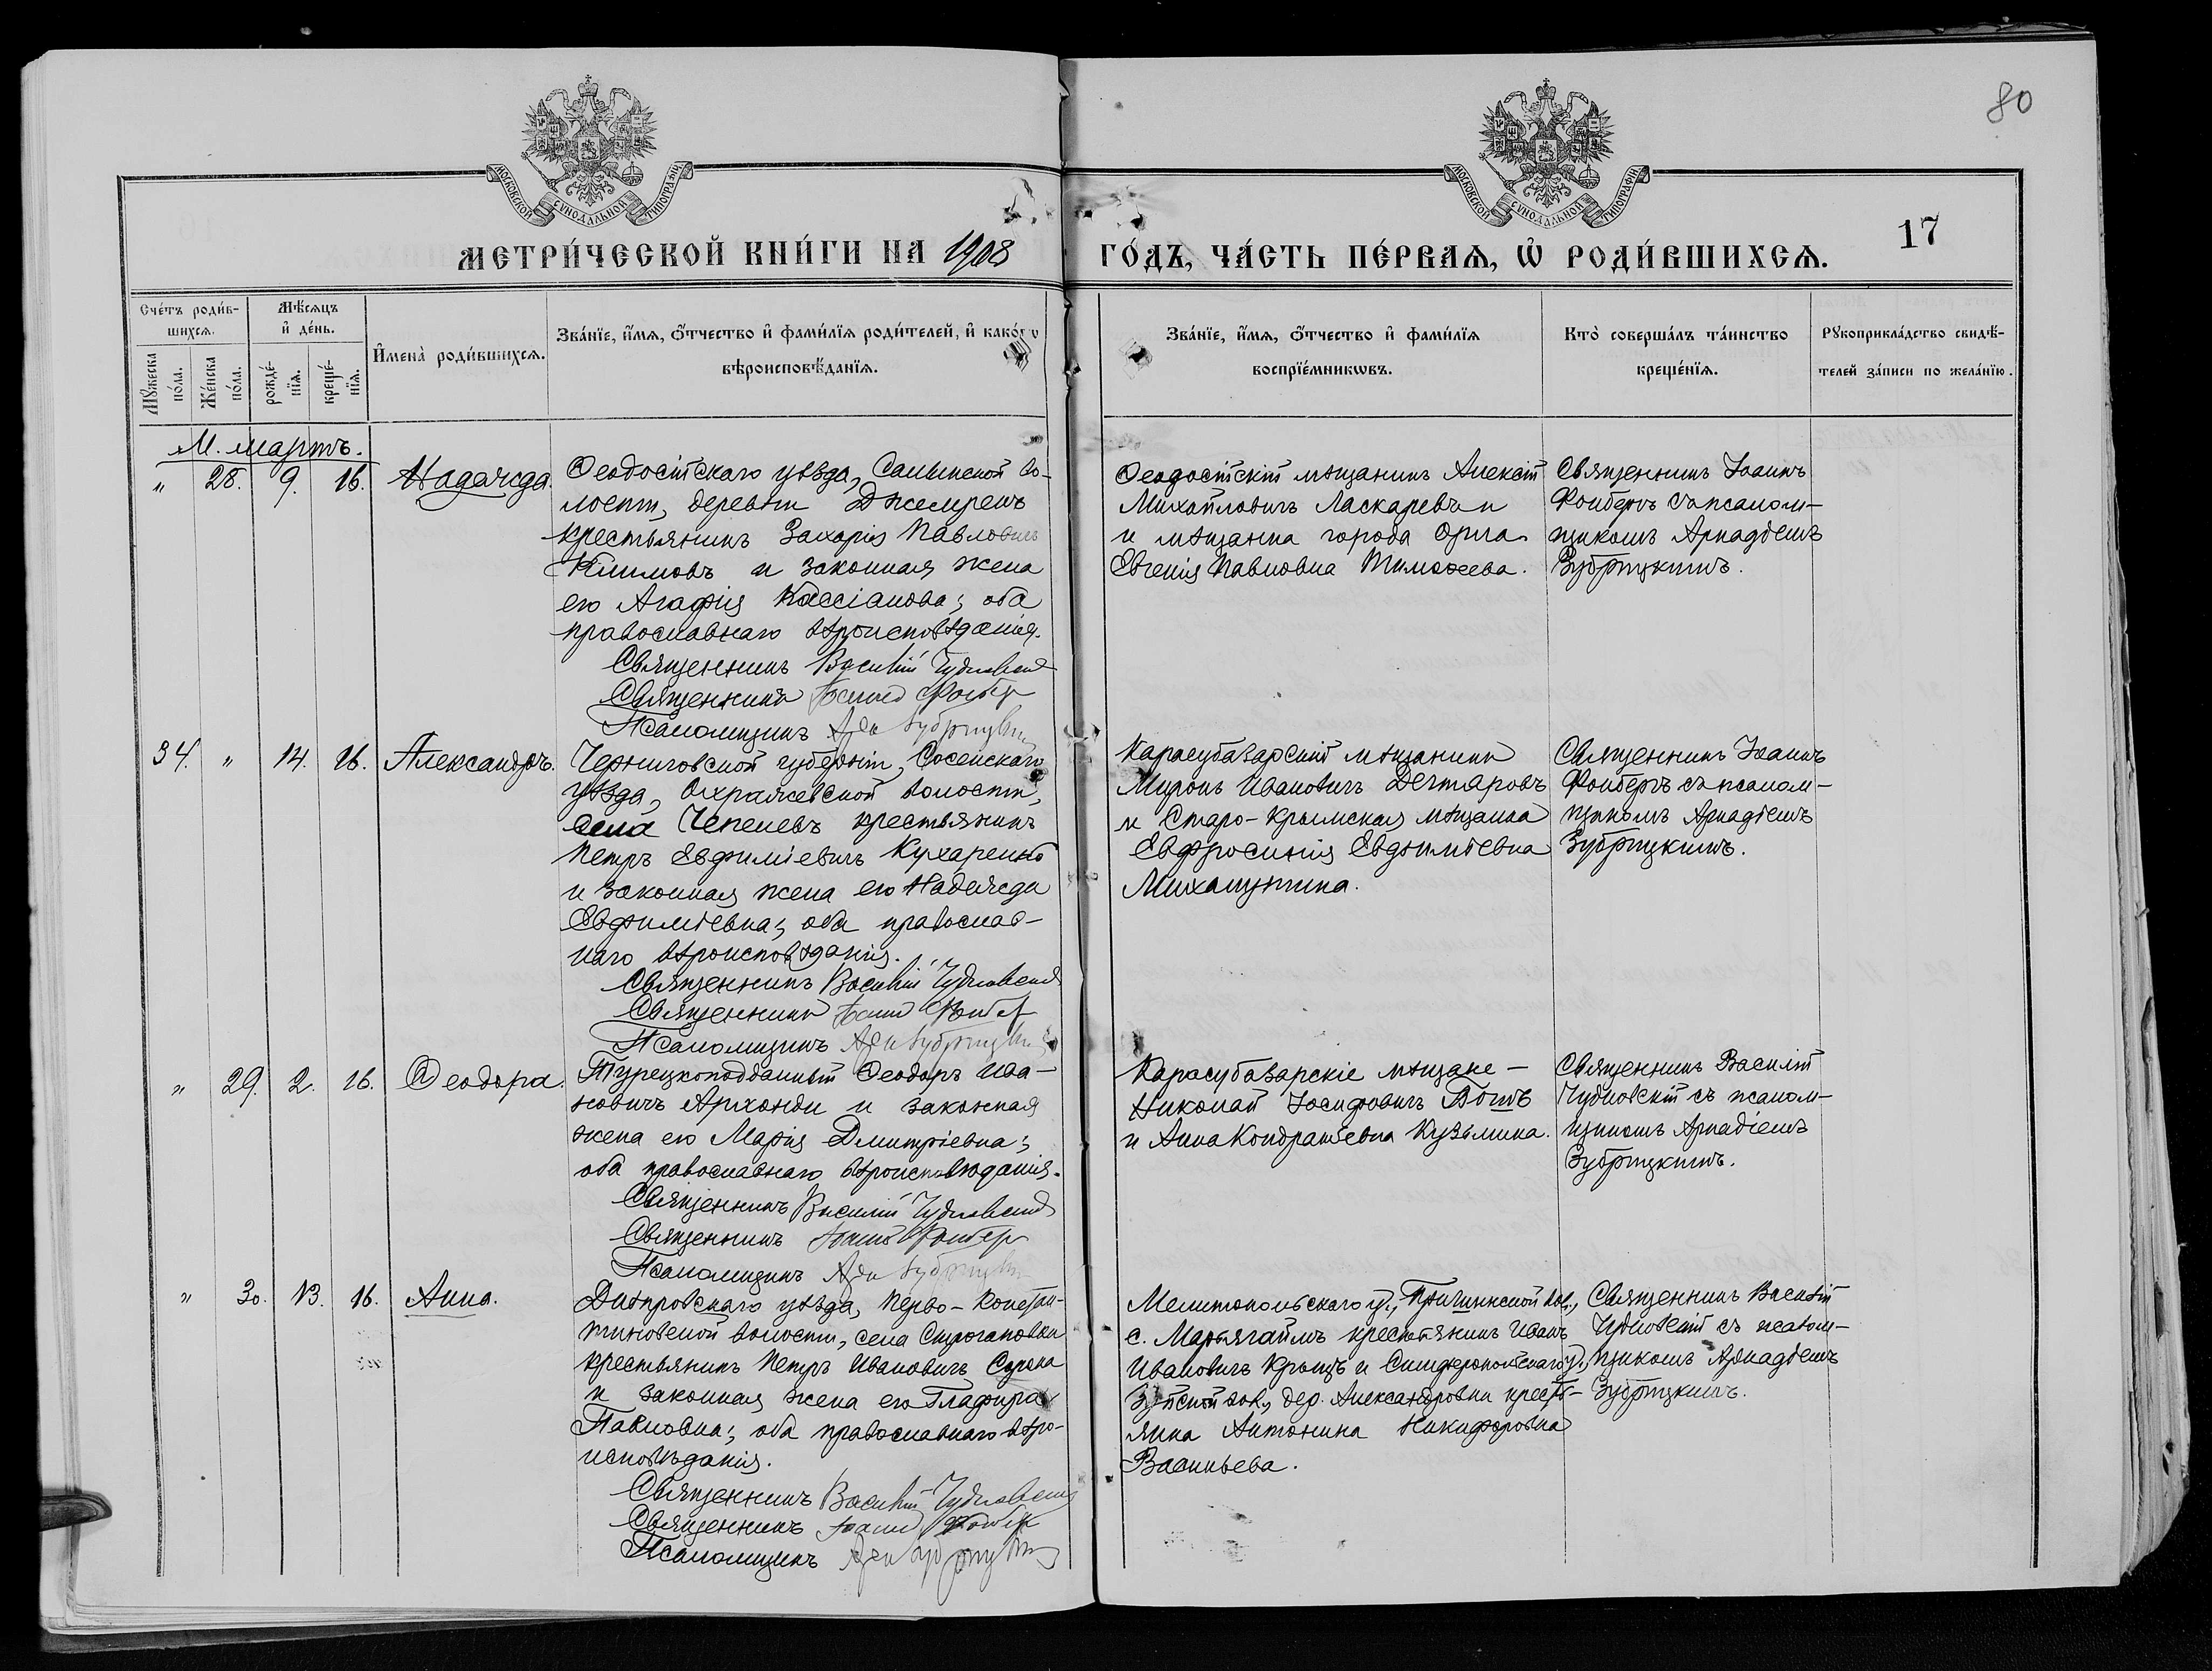 80
МОСКОВСКОЙ СѴНОДАЛЬНОЙ ТИПОГРАФІИ
МОСКОВСКОЙ СѴНОДАЛЬНОЙ ТИПОГРАФІИ
17
МЕТРИ́ЧЕСКОЙ КНИ́ГИ НА 1908
ГО́ДЪ, ЧА́СТЬ ПЕ́РВАѦ, Ѡ҆ РОДИ́ВШИХСѦ.
Сче́тъ роди́в-
шихсѧ.
Мꙋ́жеска по́ла.
Же́нска по́ла.
Мѣ́сѧцъ
и҆ де́нь.
рожде́-
нїѧ.
креще́-
нїѧ.
И҆мена̀ роди́вшихсѧ.
Зва́нїе, и҆́мѧ, ѻ҆́тчество и҆ фами́лїѧ роди́телей, и҆ како́гѡ
вѣроисповѣ́данїѧ.
Зва́нїе, и҆́мѧ, ѻ҆́тчество и҆ фами́лїѧ
воспрїе́мникѡвъ.
Кто̀ соверша́лъ та́инство
креще́нїѧ.
Рꙋкоприкла́дство свидѣ́-
телей за́писи по жела́нїю.
М. мартъ.
" 28. 9. 16. Надежда.
Ѳеодосійскаго уѣзда, Салынской во-
лости, деревни Джемрекъ
крестьянинъ Захарія Павловичъ
Климовъ и законная жена
его Агафія Кассіанова; оба
православнаго вѣроисповѣданія.
Священникъ Василій Чудновскій
Священникъ Іоаннъ Фонберъ
Псаломщикъ Арк Зубрицкій
Ѳеодосійскій мѣщанинъ Алексій
Михайловичъ Ласкаревъ и
и мѣщанка города Орла
Евгенія Павловна Тимоѳеева.
Священникъ Іоаннъ
Фонберъ съ псалом-
щикомъ Аркадіемъ
Зубрицкимъ.
34. " 14. 16. Александръ.
Черниговской губерніи, Сосенскаго
уѣзда, Охрамеевской волости,
села Чепелевъ крестьянинъ
Петръ Евфиміевичъ Кухаренко
и законная жена его Надежда
Евфиміевна; оба православ-
наго вѣроисповѣданія.
Священникъ Василій Чудновскій
Священникъ Іоаннъ Фонберъ
Псаломщикъ Арк Зубрицкій
Карасубазарскій мѣщанинъ
Миронъ Ивановичъ Дехтяровъ
и Старо-Крымская мѣщанка
Евфросинія Евфиміевна
Священникъ Іоаннъ
Фонберъ съ псалом-
щикомъ Аркадіемъ
Зубрицкимъ.
" 29. 2. 16. Ѳеодора.
Турецкоподданный Ѳеодоръ Ива-
новичъ Архонди и законная
жена его Марія Димитріевна;
оба православнаго вѣроисповѣданія.
Священникъ Василій Чудновскій
Священникъ Іоаннъ Фонберъ
Псаломщикъ Арк Зубрицкій
Карасубазарскіе мѣщане -
Николай Іосифовичъ
и Анна Кондратьевна Кузьмина.
Священникъ Василій
Чудновскій съ псалом-
щикомъ Аркадіемъ
Зубрицкимъ.
" 30. 13. 16. Анна.
Днѣпровскаго уѣзда, Перво-Констан-
тиновской волости, села Строгановки
крестьянинъ Петръ Ивановичъ Сорока
и законная жена его Глафира
Павловна; оба православнаго вѣро-
исповѣданія.
Священникъ Василій Чудновскій
Священникъ Іоаннъ Фонберъ
Псаломщикъ Арк Зубрицкій
Мелитопольскаго у., вол.,
с. крестьянинъ Иванъ
Ивановичъ и Симферопольскаго у.,
Зуйской вол., дер. Александровки кресть-
янка Антонина Никифоровна
Васильева.
Священникъ Василій
Чудновскій съ псалом-
щикомъ Аркадіемъ
Зубрицкимъ.